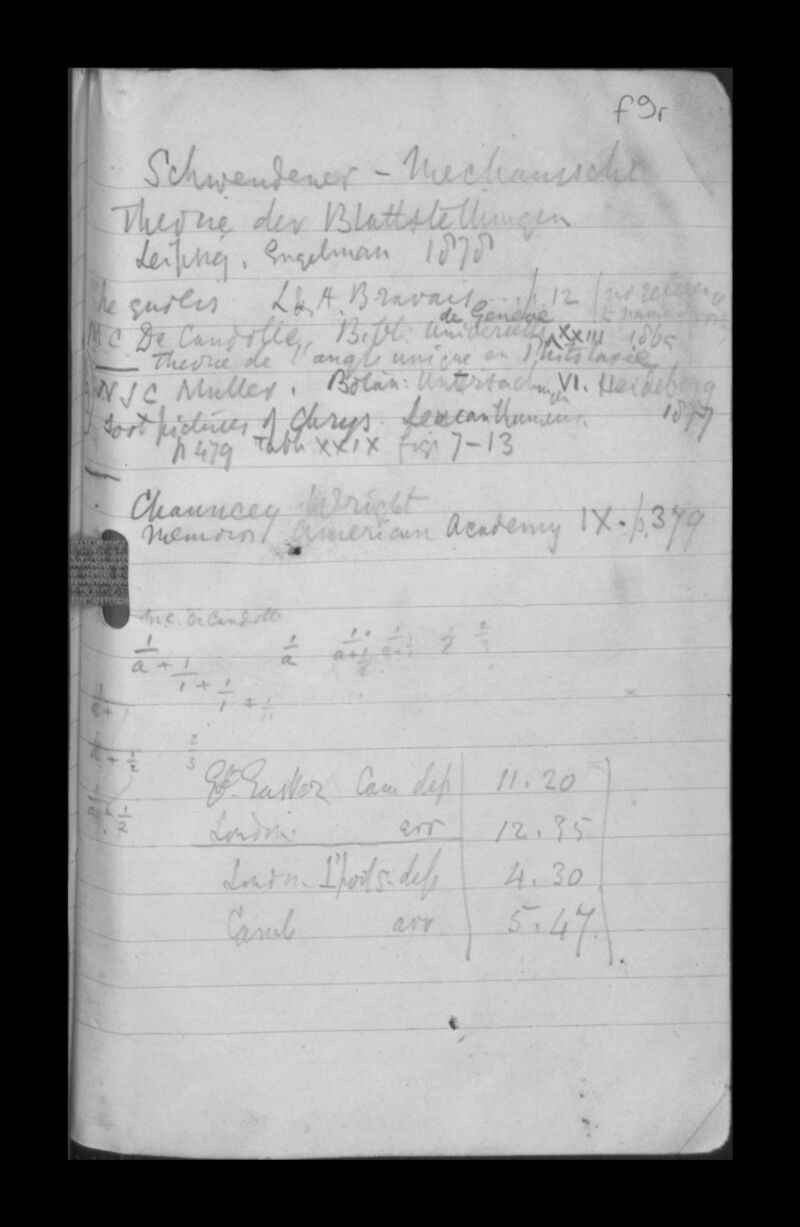 f 9r
Schwendener - Mechanische
Theorie der Blattstellungen
Leipzig. Engelman 1878
he quotes L & A. Bravais ... p. 12 (no reference
to name of work
C De Candolle, Bibl: Universelle de Genève XXIII 1865
Theorie de l'angle unique en Phyllotaxie
N J C Muller. Botan: Untersuchungen VI. Heidelberg
1877
pictures of Chrys. Leucanthemum.
p 479 Tabl XXIX figs 7-13
Chauncey Wright
Memoirs American Academy IX. p. 379
M. C. De Candolle
1/a + 1/1 + 1/1 + 1/11 1/a 1/a+1/2
1/a+
1/a + 1/2 2/3
1/a + 1/2
Easter Cam dep 11.20
London arr 12.35
London L'pool S: dep 4.30
Camb arr 5.47